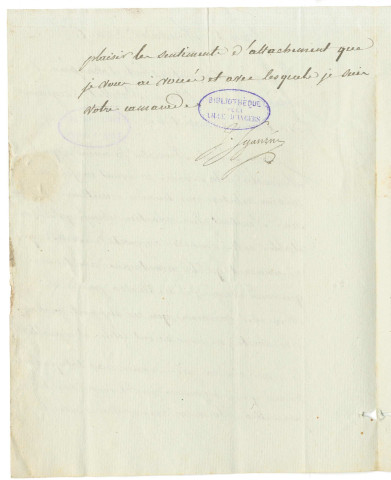 plaisir les sentiments d'attachement que
je vous ai voués et avec lesquels je suis
votre camarade
BIBLIOTHÈQUE
DE LA
VILLE D'ANGERS